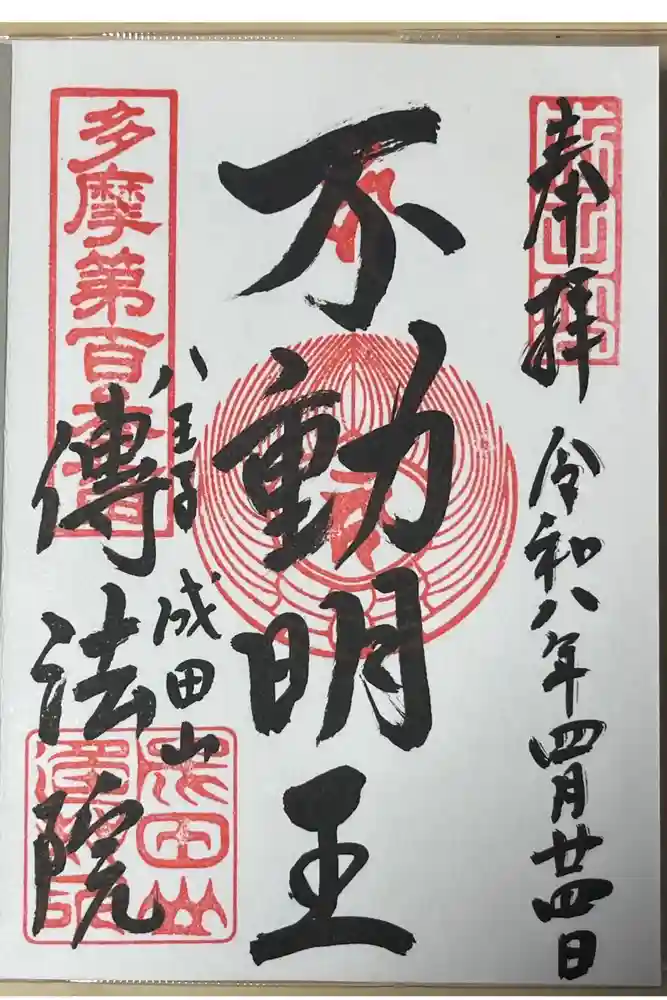 奉拝
令和八年四月廿四日
不動明王
八王子
成田山
傳法院
多摩第百
成田山
傳法院